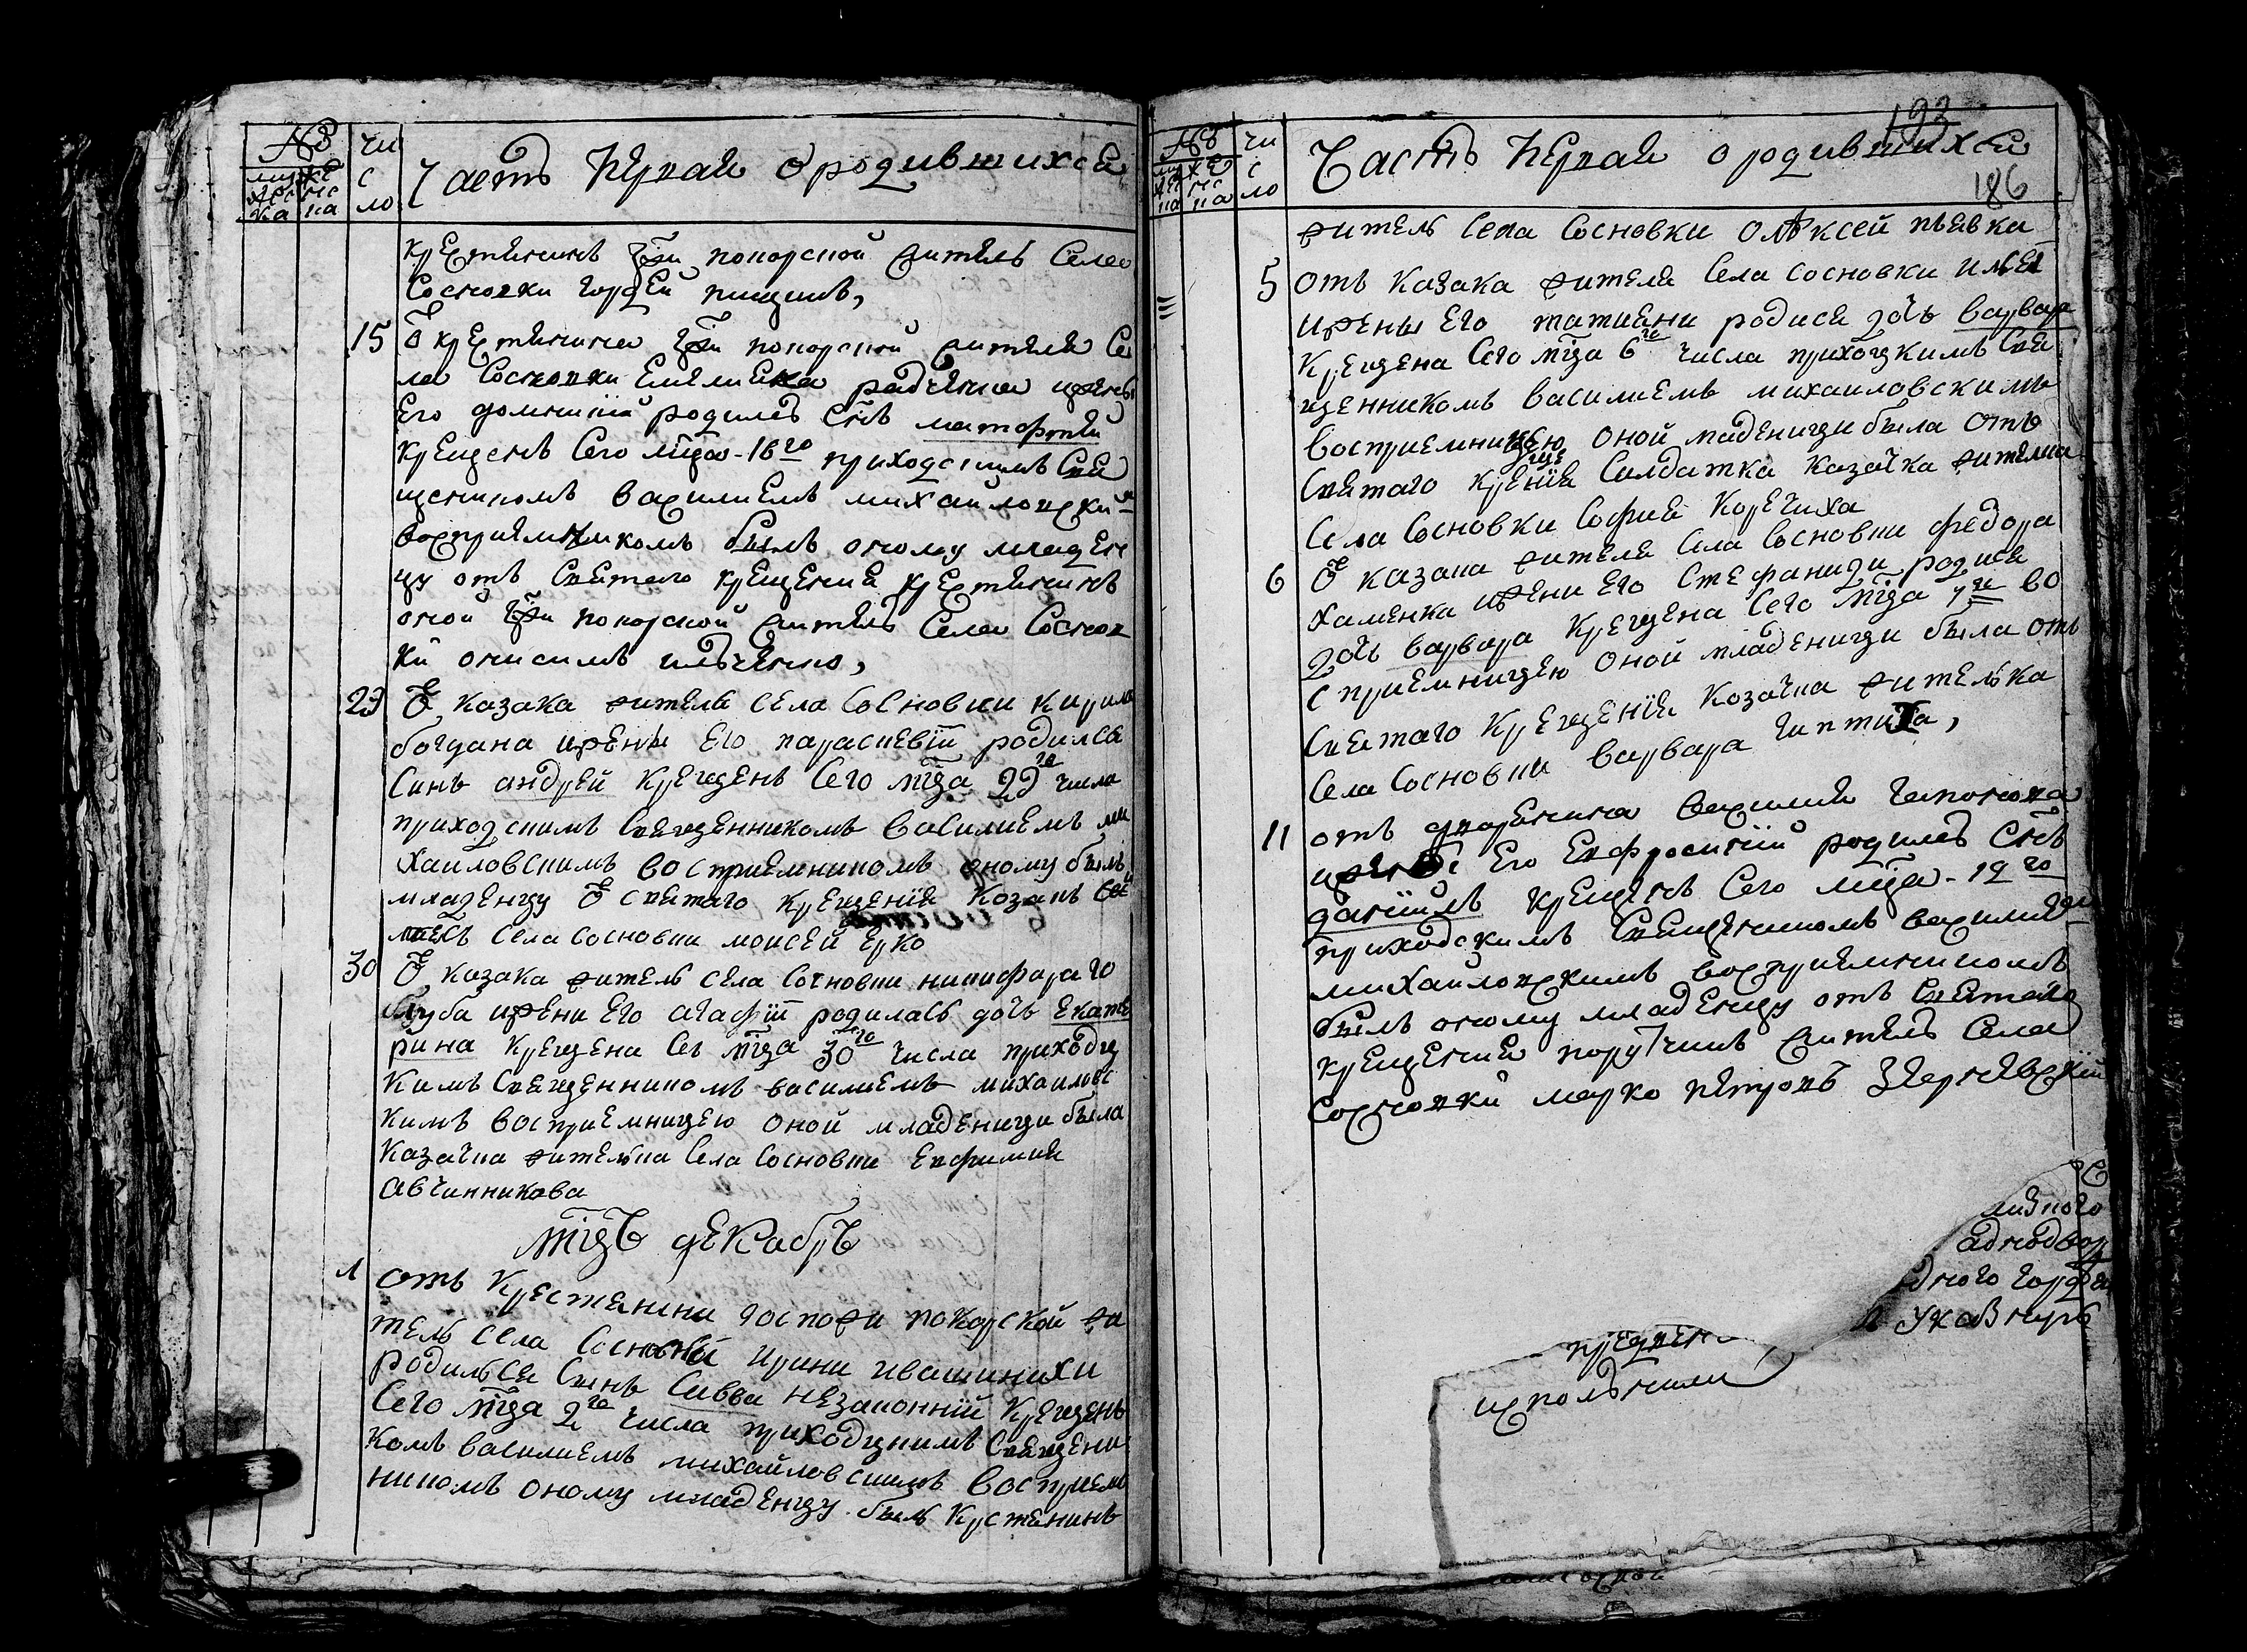 №
мужеска
женска
число
Часть Первая о родившихся
крестянинъ гжи покорской житель Села
Сосновки Гордей
15 Ѿ крестянина гжи покорской жителя Се
ла Сосновки Емелиана радченка и жены
Его домникій родилсь Снъ матфѣй
крещенъ Сего мца 16го приходскимъ Свя
щенникомъ василиемъ михайловски
воспріемникомъ былъ оному младен
цу отъ Святаго крещения крестянинъ
оной гжи покорской житель Села Соснов
ки онисимъ илченко,
29 Ѿ казака жителя села Сосновки кирила
богдана и жены его параскевіи родилса
Синъ андрей крещенъ Сего мца 29го числа
приходскимъ Священникомъ василиемъ ми
хайловскимъ восприемникомъ оному былъ
младенцу Ѿ святаго крещенія казакъ
села сосновки моисей Ерко
30 Ѿ казака житель села Сосновки никифора го
луба и жени Его агафіи родилась дочь Екате
рина крещена Се мца 30го числа приходц
кимъ Священникомъ василиемъ михаиловс
кимъ восприемницею оной младеници была
казачка жителка Села Сосновки Евфимия
авчинникова
мцъ декабръ
1 отъ крестянини госпожи покорской жи
тель села Сосновки ирини ивашинихи
родилься Синъ Савва незаконній крещенъ
Сего мца 2го числа приходцкимъ Священи
комъ василиемъ михайловскимъ восприем
никомъ оному младенцу былъ крстянинъ
№
мужеска
женска
число
Часть Первая о родившихся
193
186
житель Села Сосновки Олѣксей пьявка
5 отъ казака жителя Села сосновки ильи
и жены Его татиани родися дочь варвар
крещена Сего мца 6го числа приходцкимъ Свя
щенникомъ василиемъ михаиловскимъ
восприемницею оной младеници была отъ
Святаго крещенія Салдатка казачка жителка
Села Сосновки София Коречиха
6 Ѿ казака жителя Села Сосновки федора
хаменка и жени Его Стефаниди родися
дочь варвара крещена Сего мца 7го во
сприемницею оной младеници была отъ
Святаго крещенія козачка жителька
Села Сосновки варвара
11 отъ дворянина василия гапонова
и жены Его Евфросиніи родилсь Снъ
даніилъ крещенъ Сего мца 12го
приходскимъ Священникомъ василие
михайловскимъ воспріемникомъ
былъ оному младенцу отъ Святаго
крещения поручикъ житель Села
Сосновки марко петровъ
лизного
одного
Указнур
исполнили